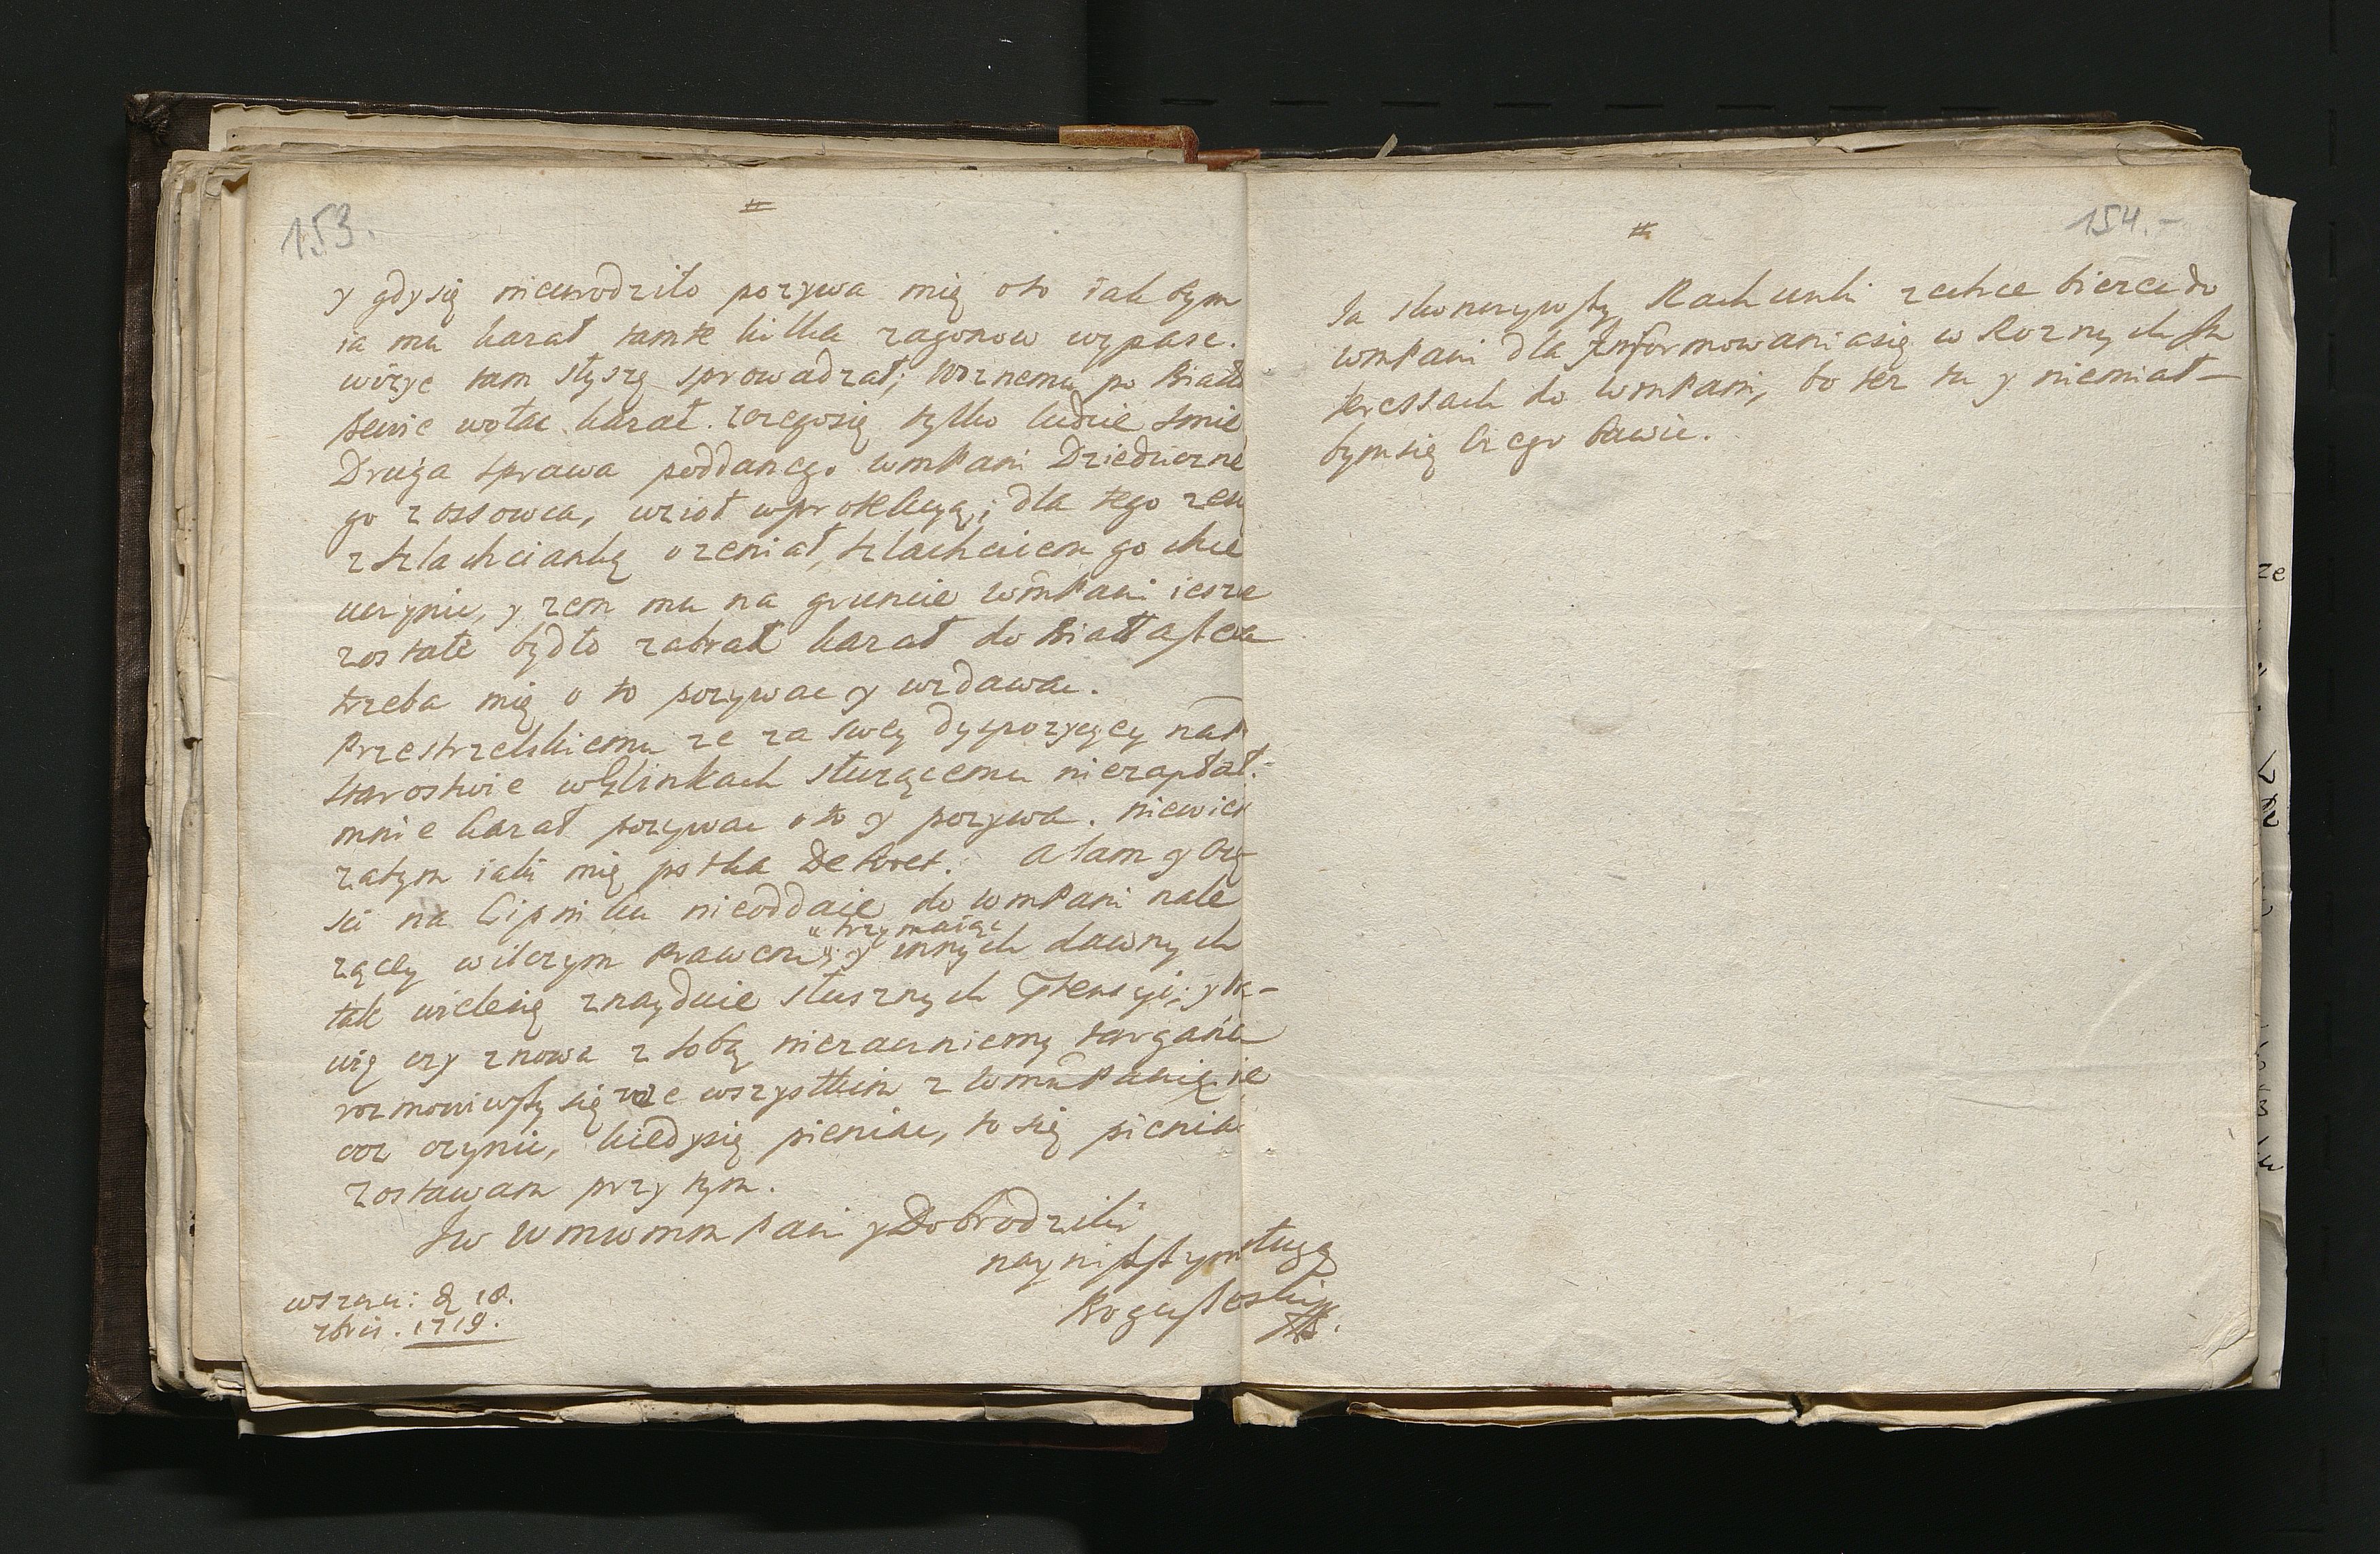 153.
y gdysię nieurodziło pozywa mię oto iakbym
ia mu kazał tamte kilka zagonow wypasc.
wizyę tam słyszę sprowadzał; Woznemu po Biało
stenie wołac kazał. zczegosię tylko ludzie smie
Druga sprawa poddanego wmPani Dziedziczne
go z ossowca, wzioł wprotekcyą; dla tego zesię
z szlachcianką ozeniał, szlachcicem go chce
uczynic, y zem mu na gruncie WmPani iesze
zostałe bydło zabrał kazał do Białłastoku
trzeba mię o to pozywac y wzdawac.
Przestrzelskiemu ze za swey dyspozycyey naP
starostwie wGlinkach służącemu niezapłał:
mnie kazał pozywac oto y pozywa. niewiem
zatym iaki mię potka Dekret. A tam y Czę-
sci na Lipniku nieoddaie do WmPani nale
zącey wilczym Prawem "trzymaiąc" y innych dawnych
tak wielesię znayduie słusznych Ptensyi; y bo-
uię czy znowu z sobą niezaczniemy targania
rozmowiwszy się we wszystkim z WmPanią. ie
coz czynic, kiedysię pieniac, to się pieniac
zostawam przy tym.
Jw WmwmmPani y Dobrodziki
nayniszszym sługą
Boguszeski
wszczu: d 18.
zbris. 1719.
154.-
Ja skonczywszy Rachunki zechce biezec do
wmPani dla Informowaniasię w Roznych In
teressach do WmPani, bo tez tu y niemiał-
bymsię czego bawic.